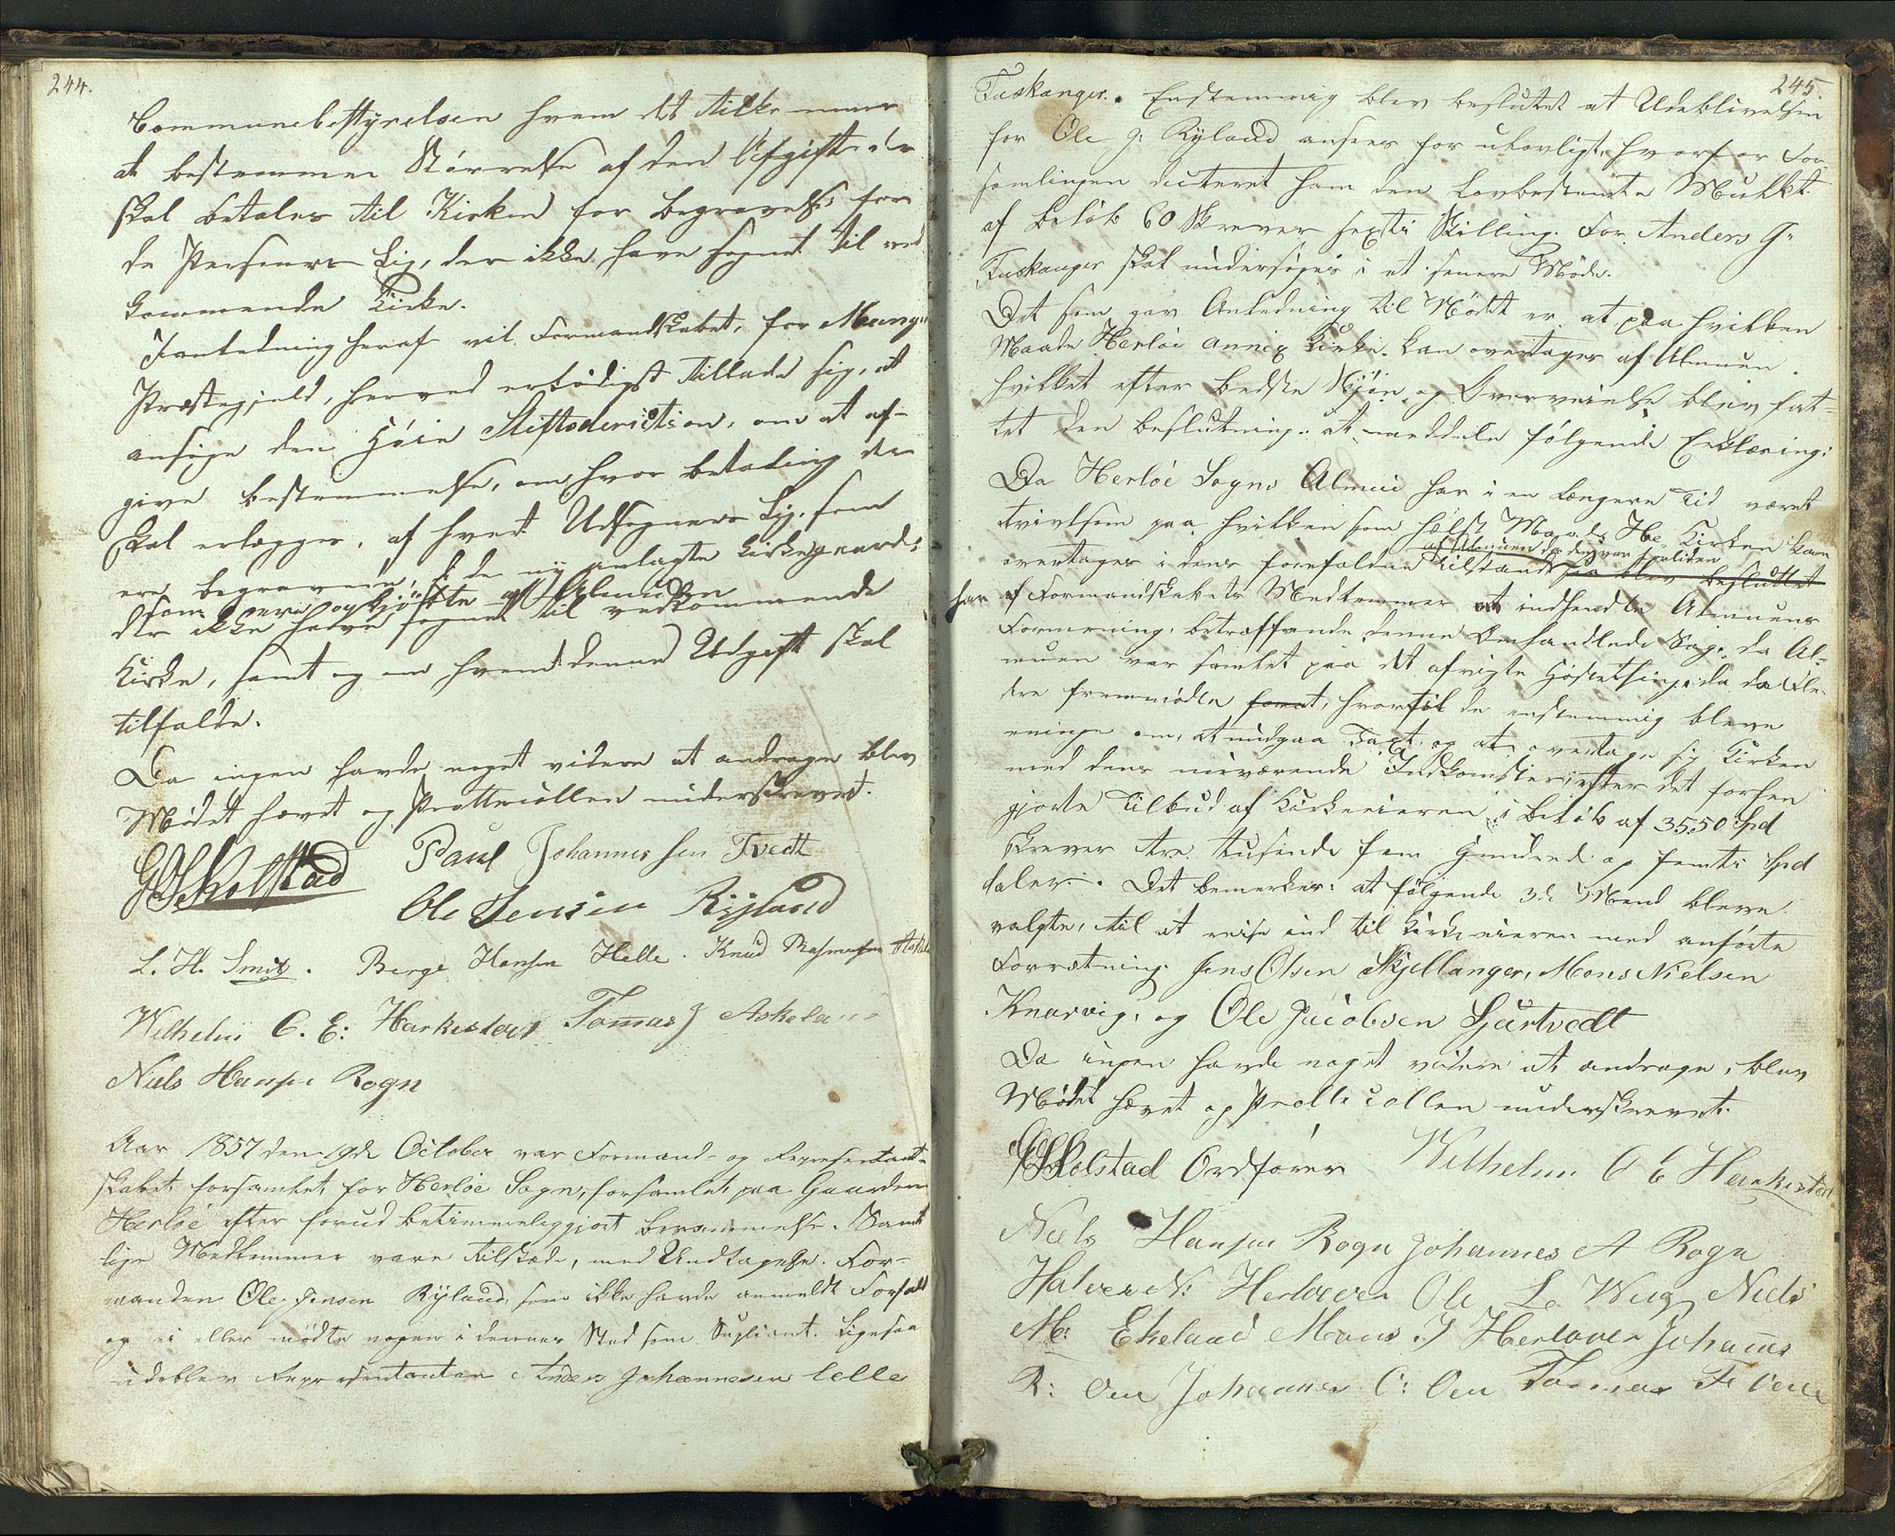 244.
Communebestyrelsen hvem det tilkommer
at bestemme Størrelse af den Afgift der
skal betales til Kirken for Begravelse for
de Personers Lig, der ikke have sognet til ved
kommende Kirke.
Ianledning heraf vil Formandskabet, for Manger
Præstegjeld, herved erbødigst tillade sig, at
ansøge den Høie Stiftsdirection, om at af-
give bestemmelse, om hvor betaling der
skal erlægges, af hvert Udsogners Lig, som
er begravede, i de ny anlagte Kirkegaarde
som ere opkjøbte af Almuen
der ikke have sognet til vedkommende
Kirke, samt og om hvem denne Udgift skal
tilfalde.
Da ingen havde noget videre at andrage blev
Mødet hævet og Prottocollen underskrevet.
Paul Johannessen Tvedt
Ole Jensen Rÿland
L. H. Smitt. Berge Hansen Helle. Knud Rasmussen
Wilhelm C. E: Harkestad Tomas J Askeland
Niels Hansen Rogn
Aar 1857 den 19de October var Formand- og Repræsentant-
skabet forsamlet, for Herløe Sogn, forsamlet paa Gaarden
Herløe efter forud betimmeliggjort berammelse. Samt
lige Medlemmer vare tilstæde, med Undtagelse. For-
manden Ole Jensen Rÿland, som ikke havde anmeldt Forfald
og ei eller mødte nogen i dennes Sted som Supliant. Ligesaa
udeblev Repræsentanten Anders Johannesen
245.
Tuskanger. Enstemmig blev besluttet at Udeblivelsen
for Ole J. Rÿland ansees for ulovligt hvorfor For-
samlingen dicteret ham den Lovbestemte Mulkt
af Beløb 60 Skrever sexti Skilling. For Anders J:
Tuskanger skal undersøges i et senere Møde.
Det som gav Anledning til Mødet er at paa hvilken
Maade Herløe annex Kirke kan overtages af Almuen.
hvilket efter bedste Skjøn og Overveielse blev fat-
tet den beslutning: at meddele følgende Erklæring:
Da Herløe Sogns Almue har i en længere Tid været
tvivlsom paa hvilken som helst Maade He. Kirken kan
af Almuen da den var
overtages i dens forefaldne tilstand saa blev besluttet
har af Formandskabets Medlemmer at indhendte Almuens
Formening, betræffende denne Omhandlede Sag, da Al-
muen var samlet paa det afvigte Høstething, da da Ale-
dre fremmødte, hvortil de enstemmig bleve
eninge om, at indgaa Taxt og at overtage sig Kirken
med dens nuværende Indkomster, efter det forhen
gjorte Tilbud af Kirkeeieren, i Beløb af 3550 Spd
Skrever tre tusinde fem Hundred og femti Spd
daler. Det bemerkes: at følgende 3de Mend bleve
valgte, til at reise ind til Kirkeeieren med anførte
Forretning. Jens Olsen Skjellanger, Mons Nielsen
Knarvig, og Ole Jacobsen Hjertvedt
Da ingen havde noget videre at andrage, blev
Mødet hævet og Prottocollen underskrevet.
Ordfører Wilhelm C E Harkestad
Niels Hansen Rogn Johannes A Rogn
Halver N: Herløver Ole L. Niels
M: Ekeland Mons J Herløver Johannes
R: Oen Johannes C: Oen Tomas